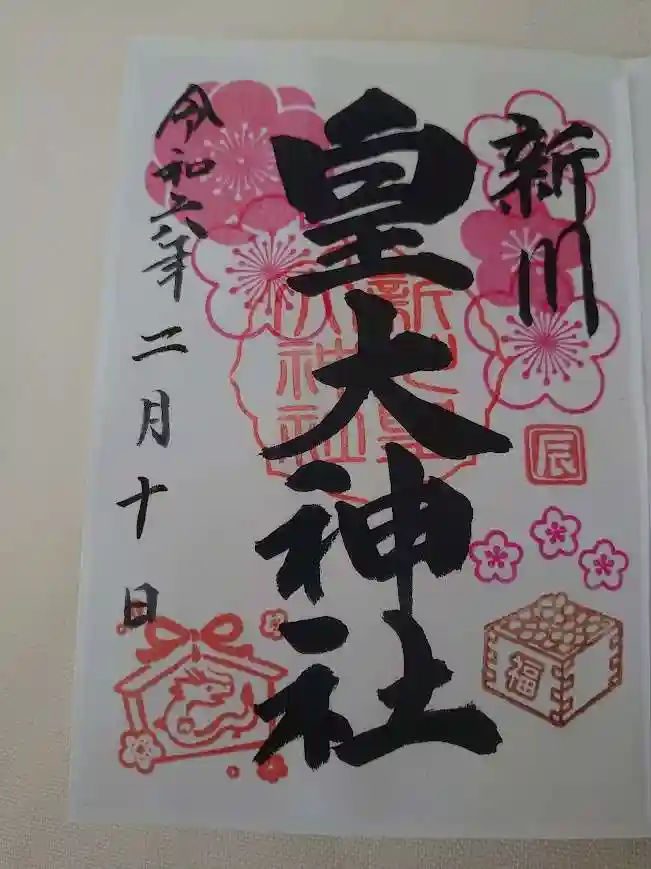 新川
皇大神社
令和六年二月十日
辰
福
新川皇
大神社